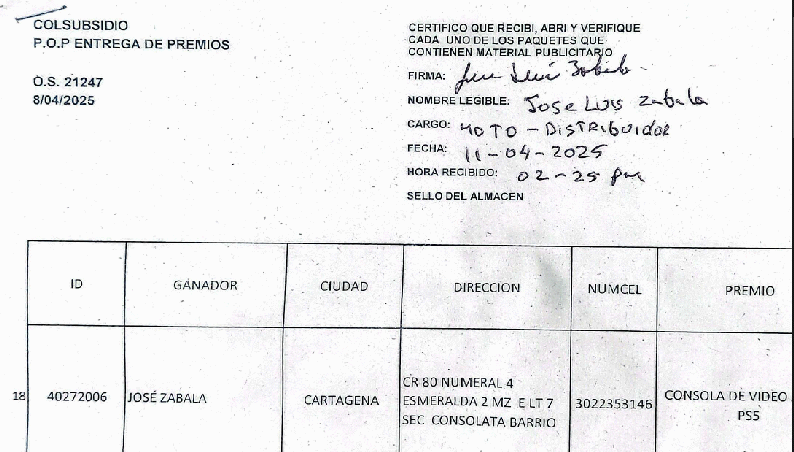 COLSUBSIDIO
P.O.P ENTREGA DE PREMIOS
O.S. 21247
8/04/2025
CERTIFICO QUE RECIBI, ABRI Y VERIFIQUE
CADA UNO DE LOS PAQUETES QUE
CONTIENEN MATERIAL PUBLICITARIO
FIRMA: Jose Luis Zabala
NOMBRE LEGIBLE: Jose Luis Zabala
CARGO: MOTO - DISTRIbuidor
FECHA: 11-04-2025
HORA RECIBIDO: 02-25 pm
SELLO DEL ALMACEN
ID GANADOR CIUDAD DIRECCION NUMCEL PREMIO
18 40272006 JOSÉ ZABALA CARTAGENA CR 80 NUMERAL 4 3022353146 CONSOLA DE VIDEO
ESMERALDA 2 MZ E LT 7 PS5
SEC CONSOLATA BARRIO